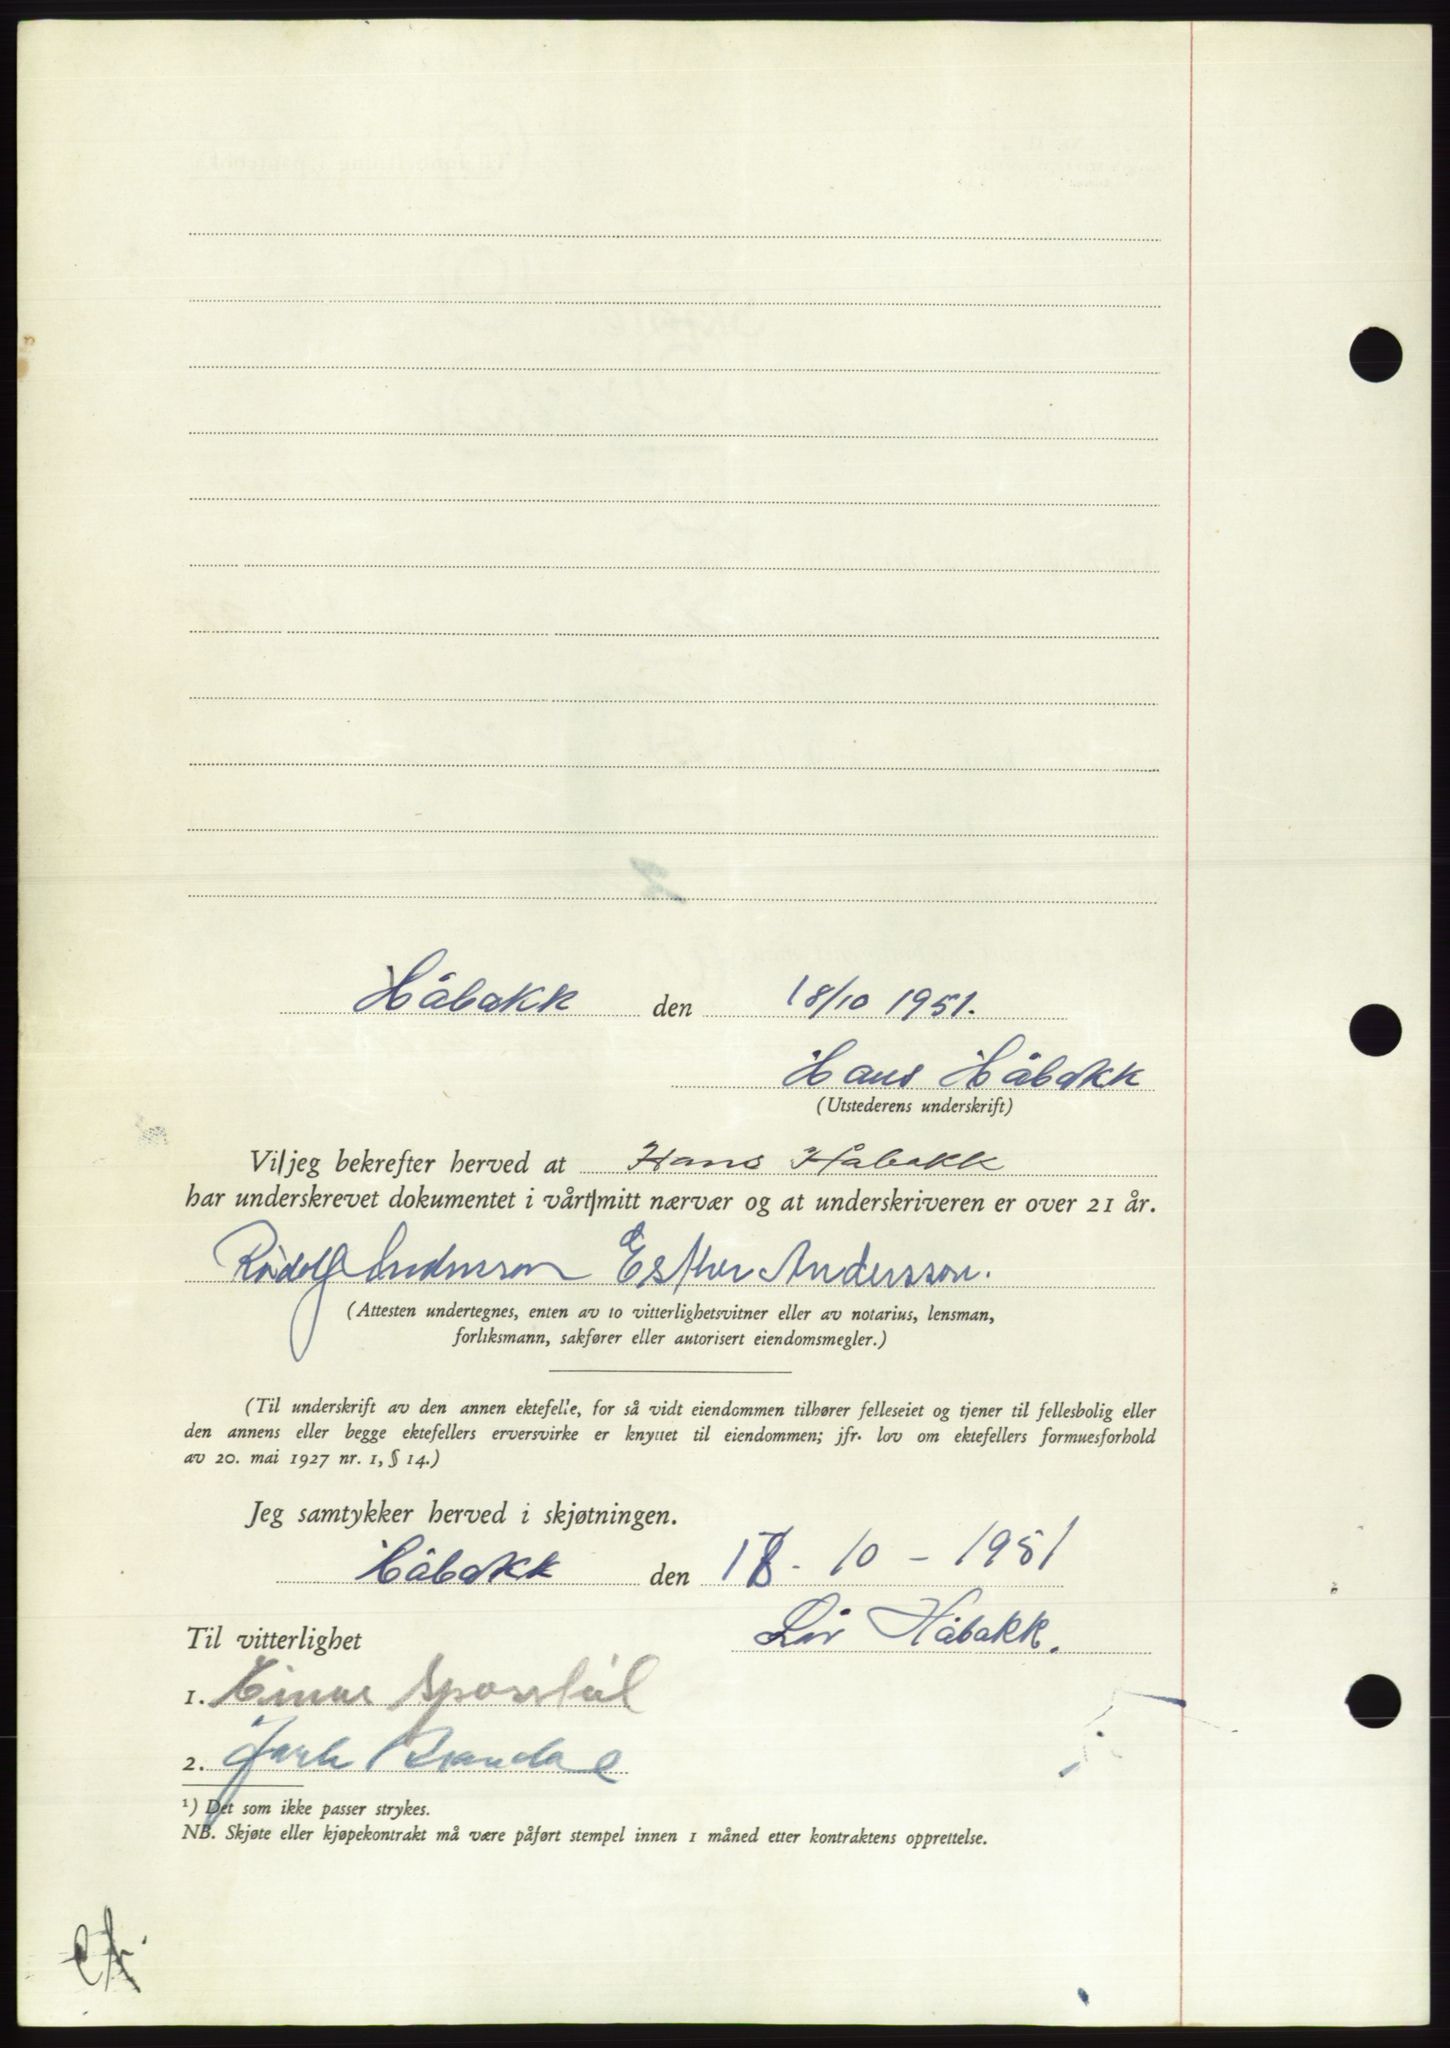 Håbakk den 18/10 1951.
Hans Håbakk
(Utstederens underskrift)
Vi/jeg bekrefter herved at Hans Håbakk
har underskrevet dokumentet i vårt/mitt nærvær og at underskriveren er over 21 år.
Rudolf Andersson Esther Andersson.
(Attesten undertegnes, enten av to vitterlighetsvitner eller av notarius, lensman,
forliksmann, sakfører eller autorisert eiendomsmegler.)
(Til underskrift av den annen ektefelle, for så vidt eiendommen tilhører felleseiet og tjener til fellesbolig eller
den annens eller begge ektefellers erversvirke er knyttet til eiendommen; jfr. lov om ektefellers formuesforhold
av 20. mai 1927 nr. 1, § 14.)
Jeg samtykker herved i skjøtningen.
Håbakk den 18 - 10 - 1951
Håbakk.
Til vitterlighet
1. Einar
2.
¹) Det som ikke passer strykes.
NB. Skjøte eller kjøpekontrakt må være påført stempel innen 1 måned etter kontraktens opprettelse.